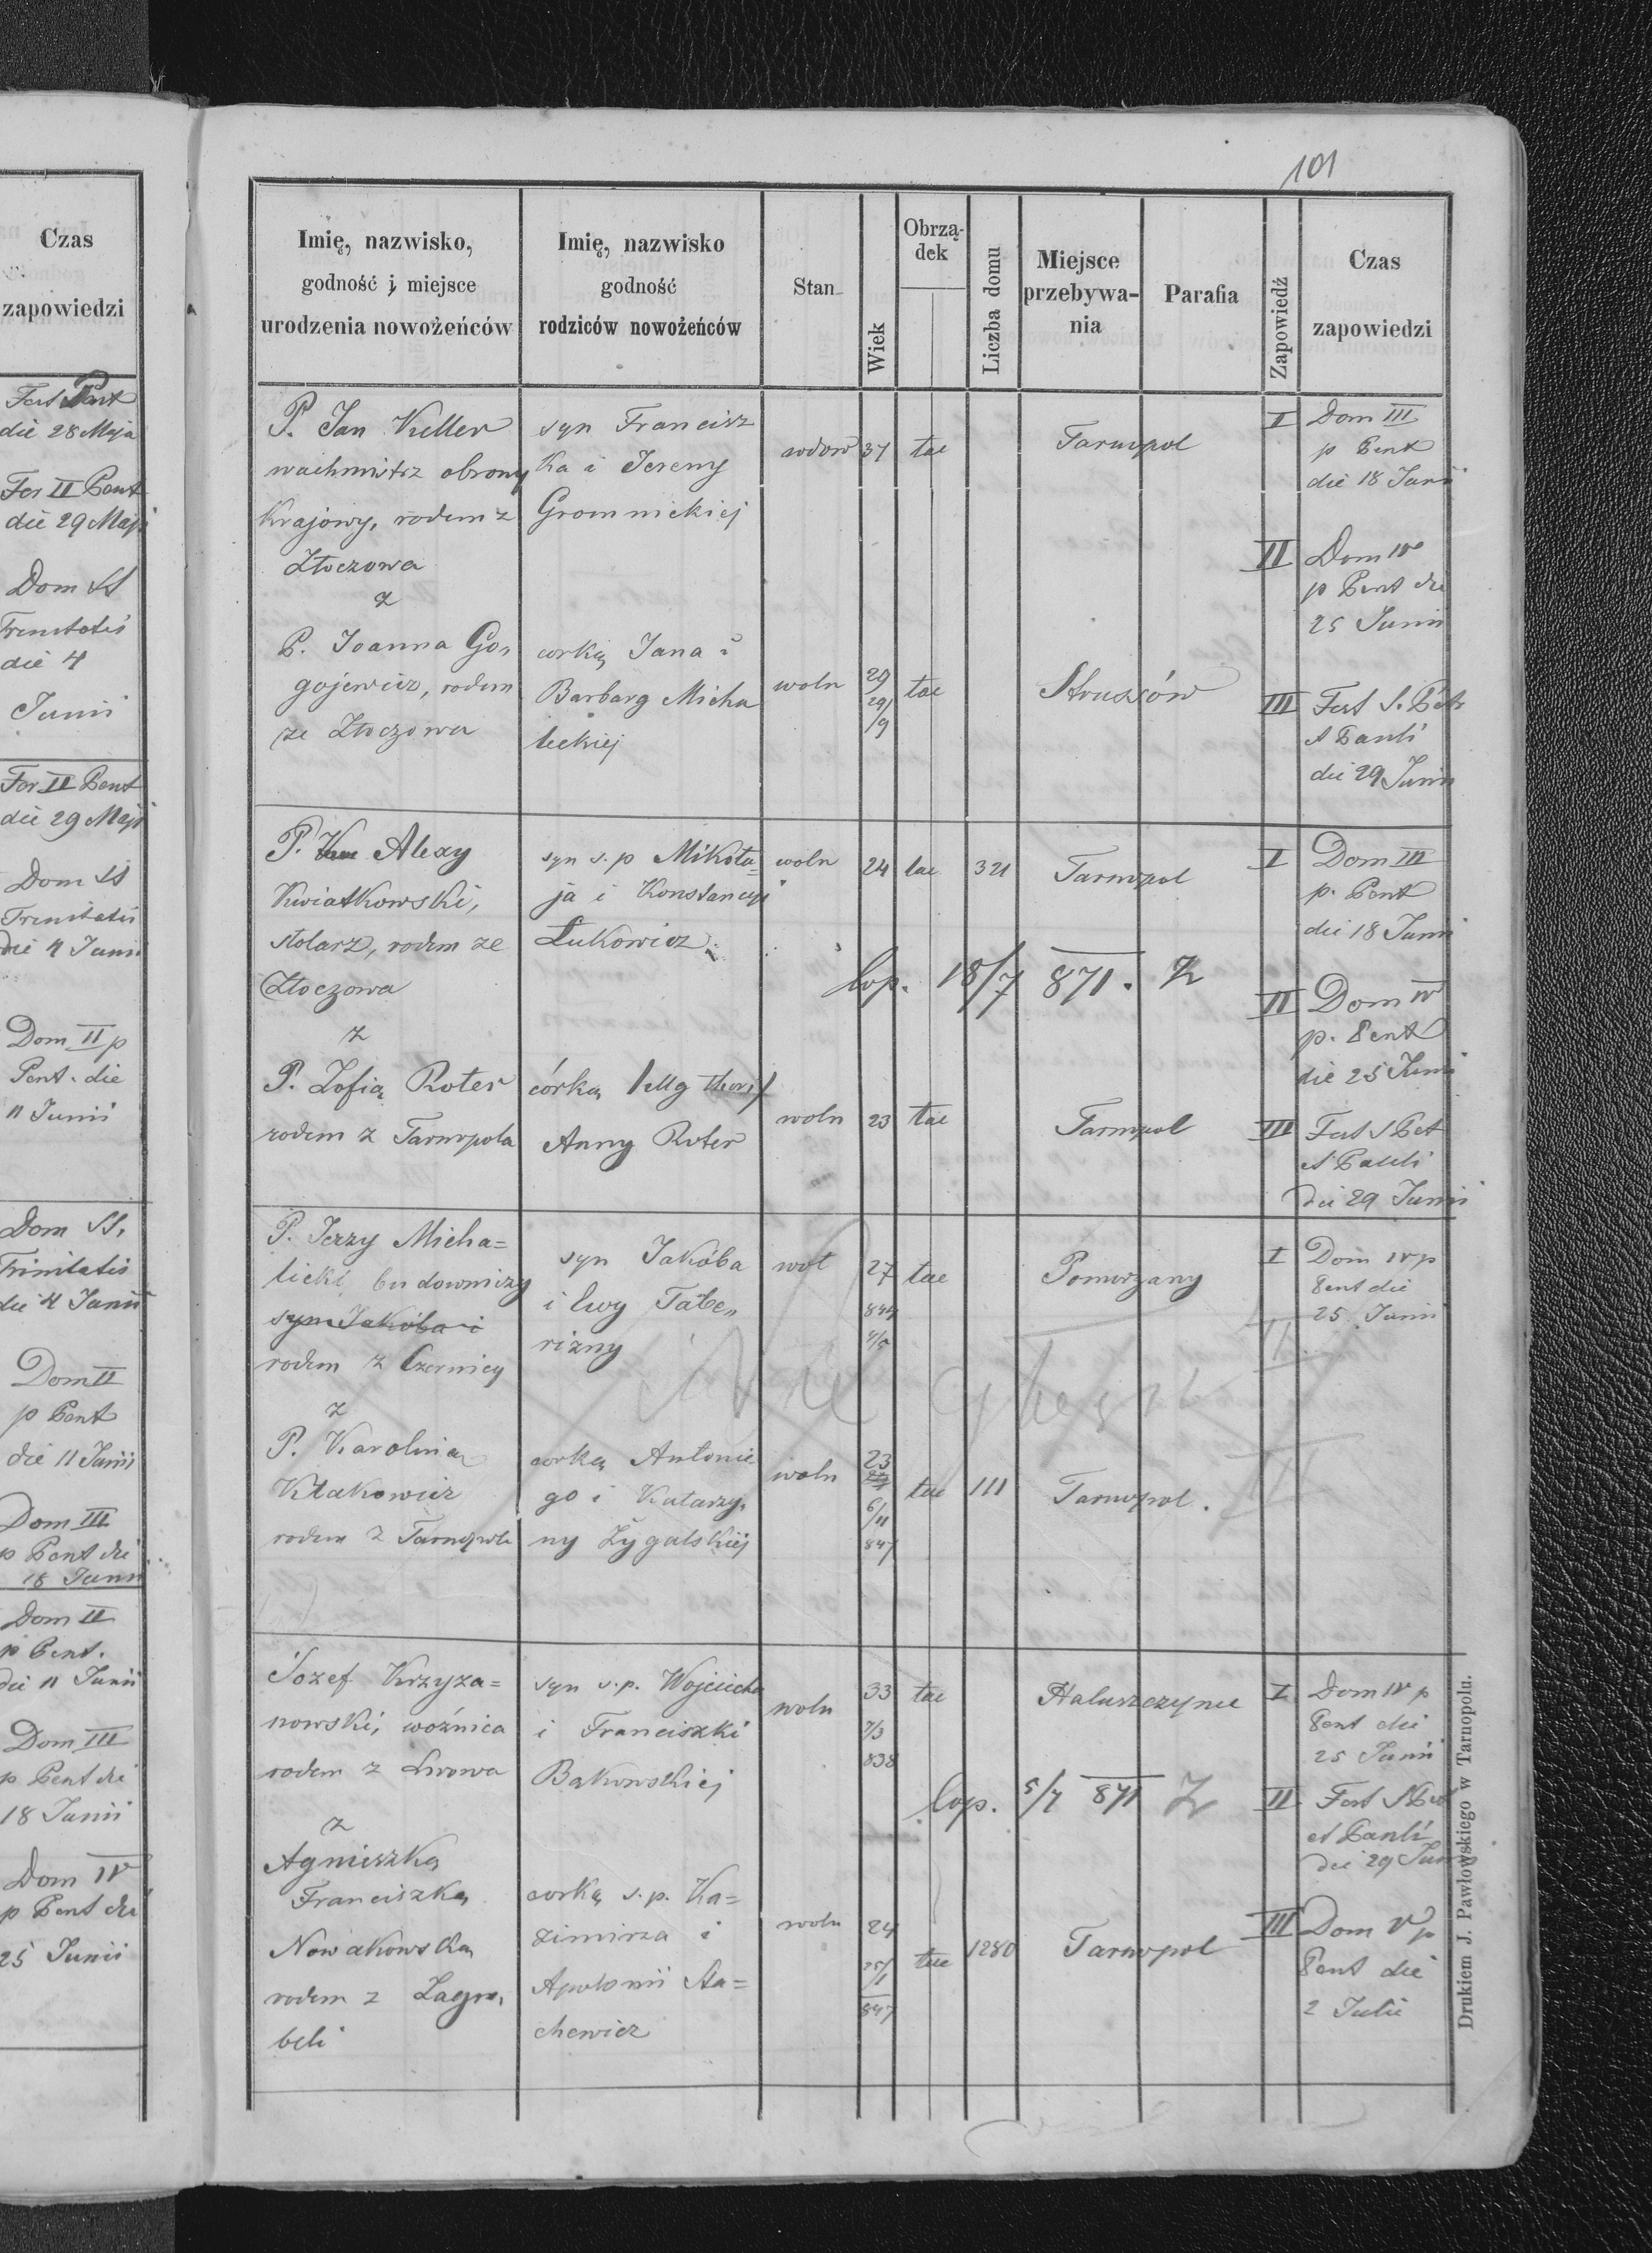 Czas
zapowiedzi
Fest Pent
die 28 Maja
Fer II Pent
die 29 Maji
Dom SS
Trinitatis
die 4
Junii
Fer II Pent
die 29 Maji
Dom SS
Trinitatis
die 4 Junii
Dom II p
Pent. die
11 Junii
Dom SS.
Trinitatis
die 4 Junii
Dom II
p Pent
die 11 Junii
Dom III
p Pent die
18 Junii
Dom II
p Pent.
die 11 Junii
Dom III
p Pent die
18 Junii
Dom IV
p Pent die
25 Junii
101
Imię, nazwisko,
godność i miejsce
urodzenia nowożeńców
Imię, nazwisko
godność
rodziców nowożeńców
Stan
Wiek
Obrzą-
dek
Liczba domu
Miejsce
przebywa-
nia
Parafia
Zapowiedź
Czas
zapowiedzi
P. Jan Keller
wachmistrz obrony
Krajowy, rodem z
Złoczowa
z
P. Joanna Go,
gojewicz, rodem
ze Złoczowa
syn Francisz
ka i Jereny
Gromnickiej
corką Jana i
Barbary Micha
leckiej
wdow 37 łac
Tarnopol
woln 29
29/
/9
łac
Strussów
I Dom III
p Pent
die 18 Junii
II Dom IV
p Pent die
25 Junii
III Fest S. Petr
et Pauli
die 29 Junii
P. Alexy
Kwiatkowski,
stolarz, rodem ze
Złoczowa
z
P. Zofią Roter
rodem z Tarnopola
syn s.p Mikoła=
ja i Konstancyi
Łukowicz
córką
Anny Roter
woln 24 łac 321 Tarnopol
Cop. 18/7 871.
woln 23 łac Tarnopol
I Dom III
p. Pent
die 18 Junii
II Dom IV
p. Pent
die 25 Junii
III Fest S Pet
et Pauli
die 29 Junii
P. Jerzy Micha=
licki, budowniczy
syn Jakóba i
rodem z Czernicy
z
P. Karolina
Kłakowicz
rodem z Tarnopola
syn Jakóba
i Ewy Tabe,
rizny
corką Antonie
go i Katarzy,
ny Zygalskiej
wol 27 łac
844
4/5
Pomorzany
woln 23
6/11
847
łac 111 Tarnopol.
I Dom IV p
Pent die
25 Junii
II
III
Józef Krzyza=
nowski, woźnica
rodem z Lwowa
z
Agnieszką
Franciszką
Nowakowską
rodem z Zagro,
beli
syn s.p. Wojciecha
i Franciszki
Bakowskiej
corką s.p. Ka=
zimirza i
Apolonii Sta=
chewicz
woln 33 łac
7/3
838
Haluszczynce
Cop. 5/7 871
woln 24
25/1
847
łac 1280 Tarnopol
I Dom IV p
Pent die
25 Junii
II Fest S Pet
et Pauli
die 29 Junii
III Dom V p
Pent die
2 Julii
Drukiem J. Pawłowskiego w Tarnopolu.